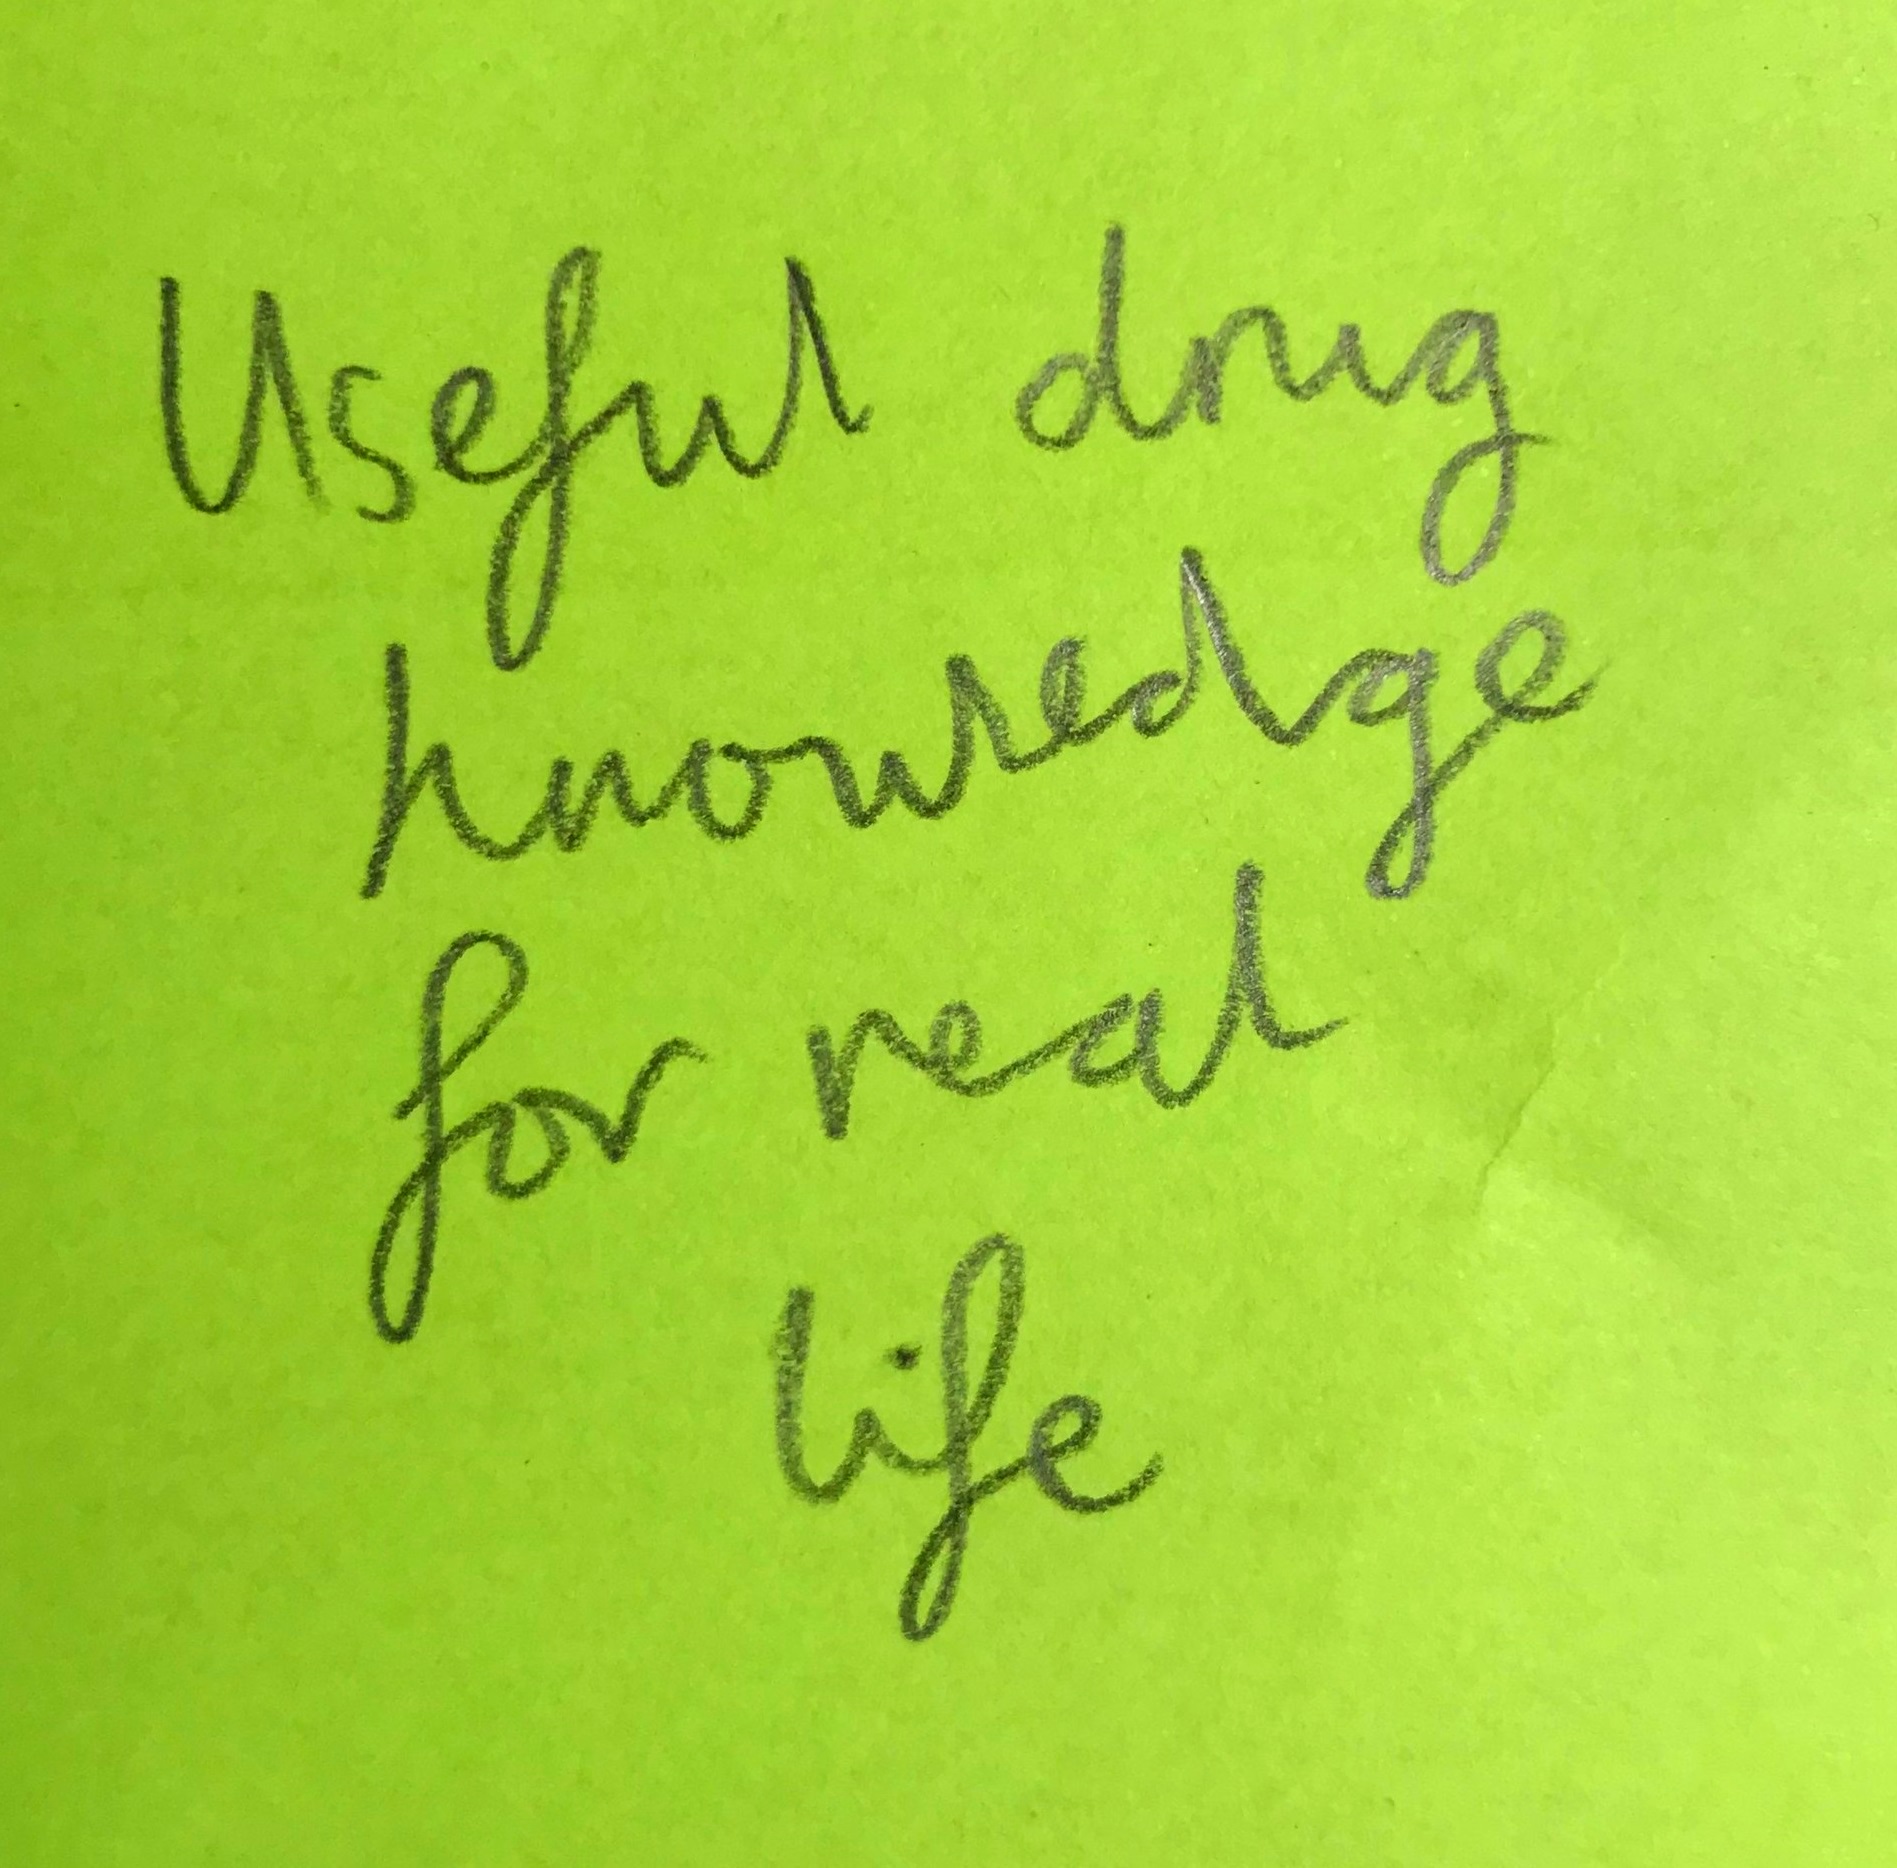 Useful drug
knowledge
for real
life